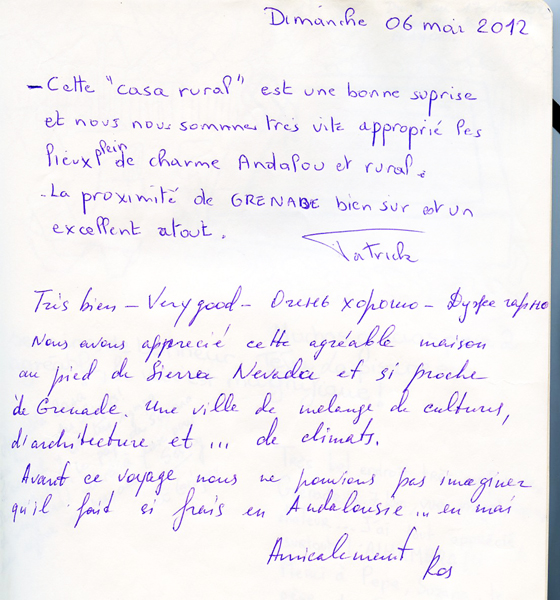 Dimanche 06 mai 2012
- Cette "casa rural" est une bonne suprise
et nous nous sommes très vite approprié les
lieux plein de charme Andalou et rural.
- La proximité de GRENADE bien sur est un
excellent atout.
Patrick
Très bien - Very good - Очень хорошо - Дуже гарно
Nous avons apprecié cette agréable maison
au pied de Sierra Nevada et si proche
de Grenade. Une ville de melange de cultures,
d'architecture et ... de climats.
Avant ce voyage nous ne pouvions pas imaginer
qu'il fait si frais en Andalousie... en mai
Amicalement Ros